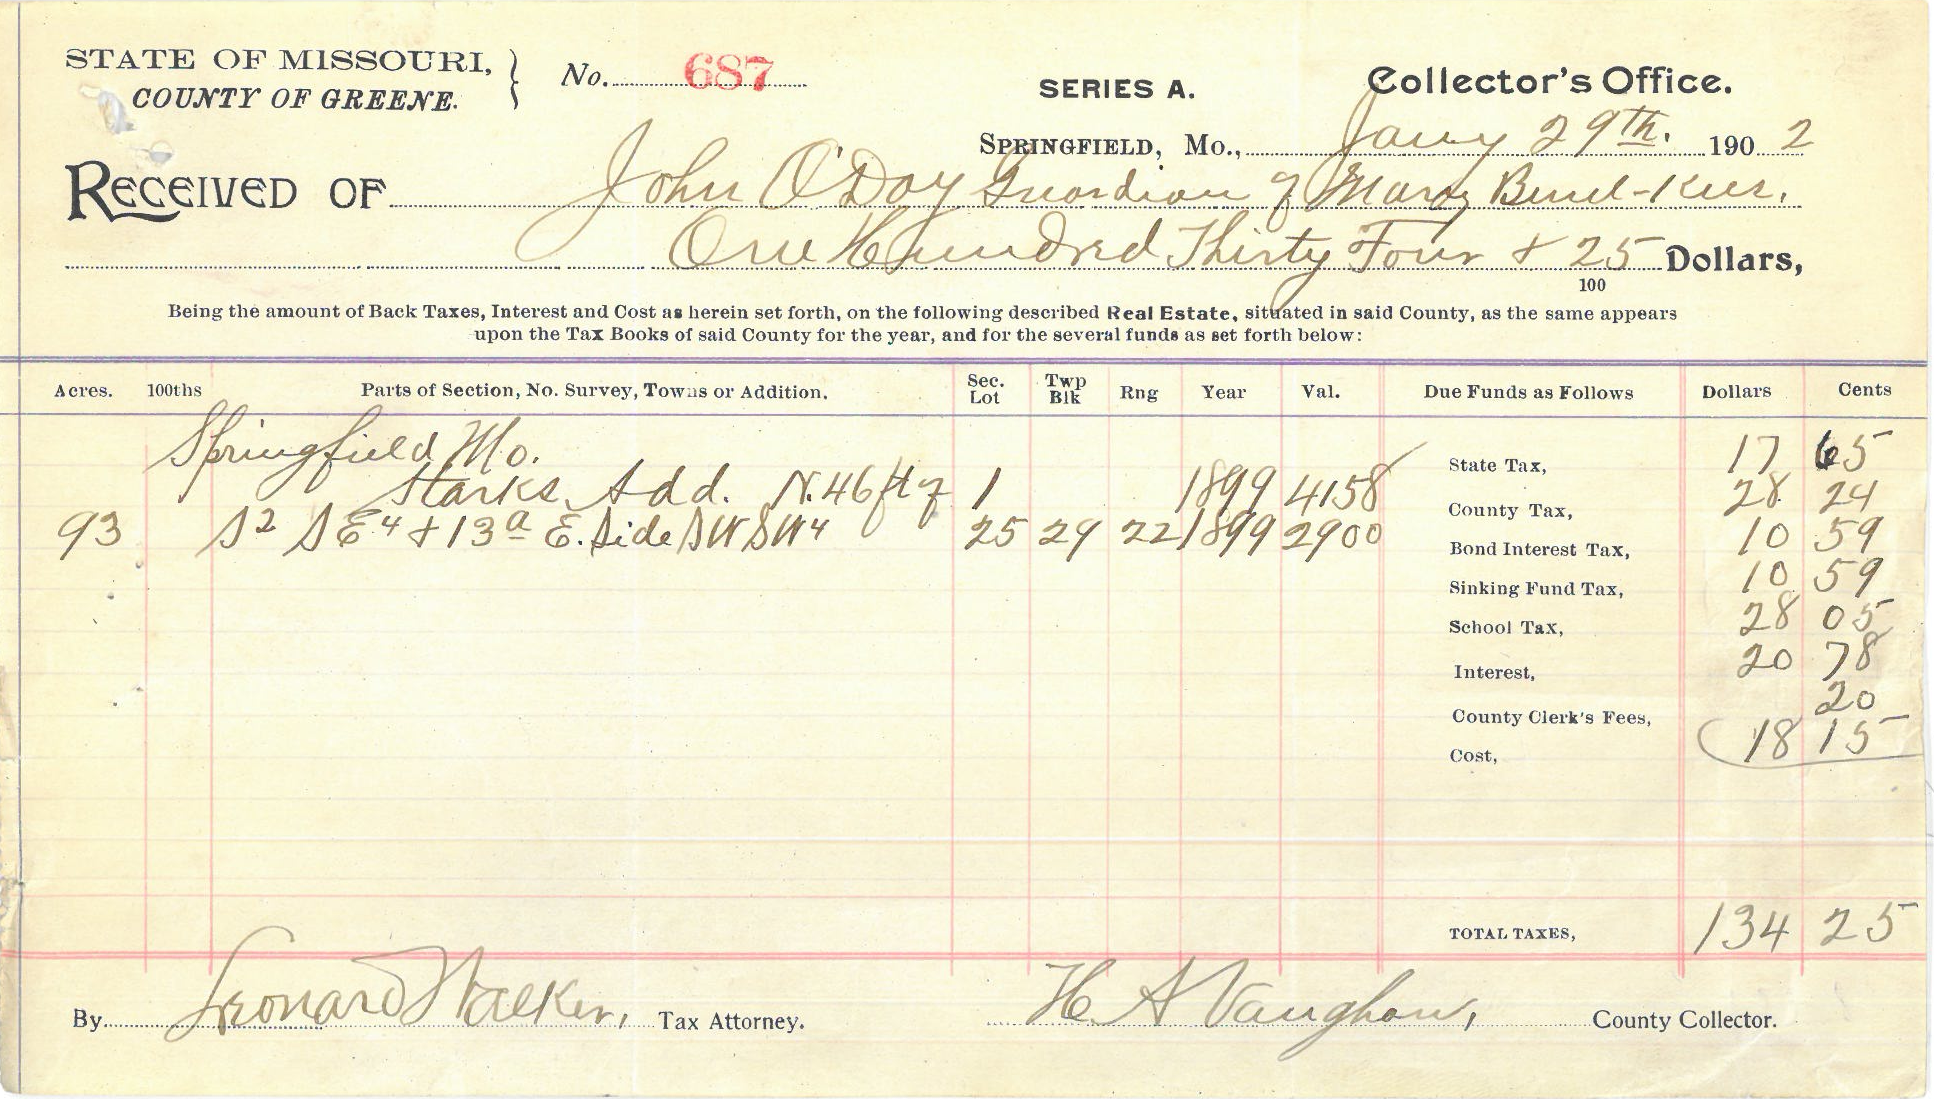 STATE OF MISSOURI,
COUNTY OF GREENE.
No. 687
SERIES A.
Collector's Office.
SPRINGFIELD, Mo., Jany 29th. 1902
RECEIVED OF John O'Day Guardian of Mary
One Hundred Thirty Four + 25 Dollars,
100
Being the amount of Back Taxes, Interest and Cost as herein set forth, on the following described Real Estate, situated in said County, as the same appears
upon the Tax Books of said County for the year, and for the several funds as set forth below:
Acres. 100ths Parts of Section, No. Survey, Towns or Addition. Sec. Lot Twp Blk Rng Year Val. Due Funds as Follows Dollars Cents
Springfield Mo.
Starks Add. N. 46 ft of 1 1899 4158
93 S2 SE4 + 13a E. Side SW SW4 25 29 22 1899 2900
State Tax, 17 65
County Tax, 28 24
Bond Interest Tax, 10 59
Sinking Fund Tax, 10 59
School Tax, 28 05
Interest, 20 78
County Clerk's Fees, 20
Cost, 18 15
TOTAL TAXES, 134 25
By Leonard Walker, Tax Attorney. H A Vaughan, County Collector.